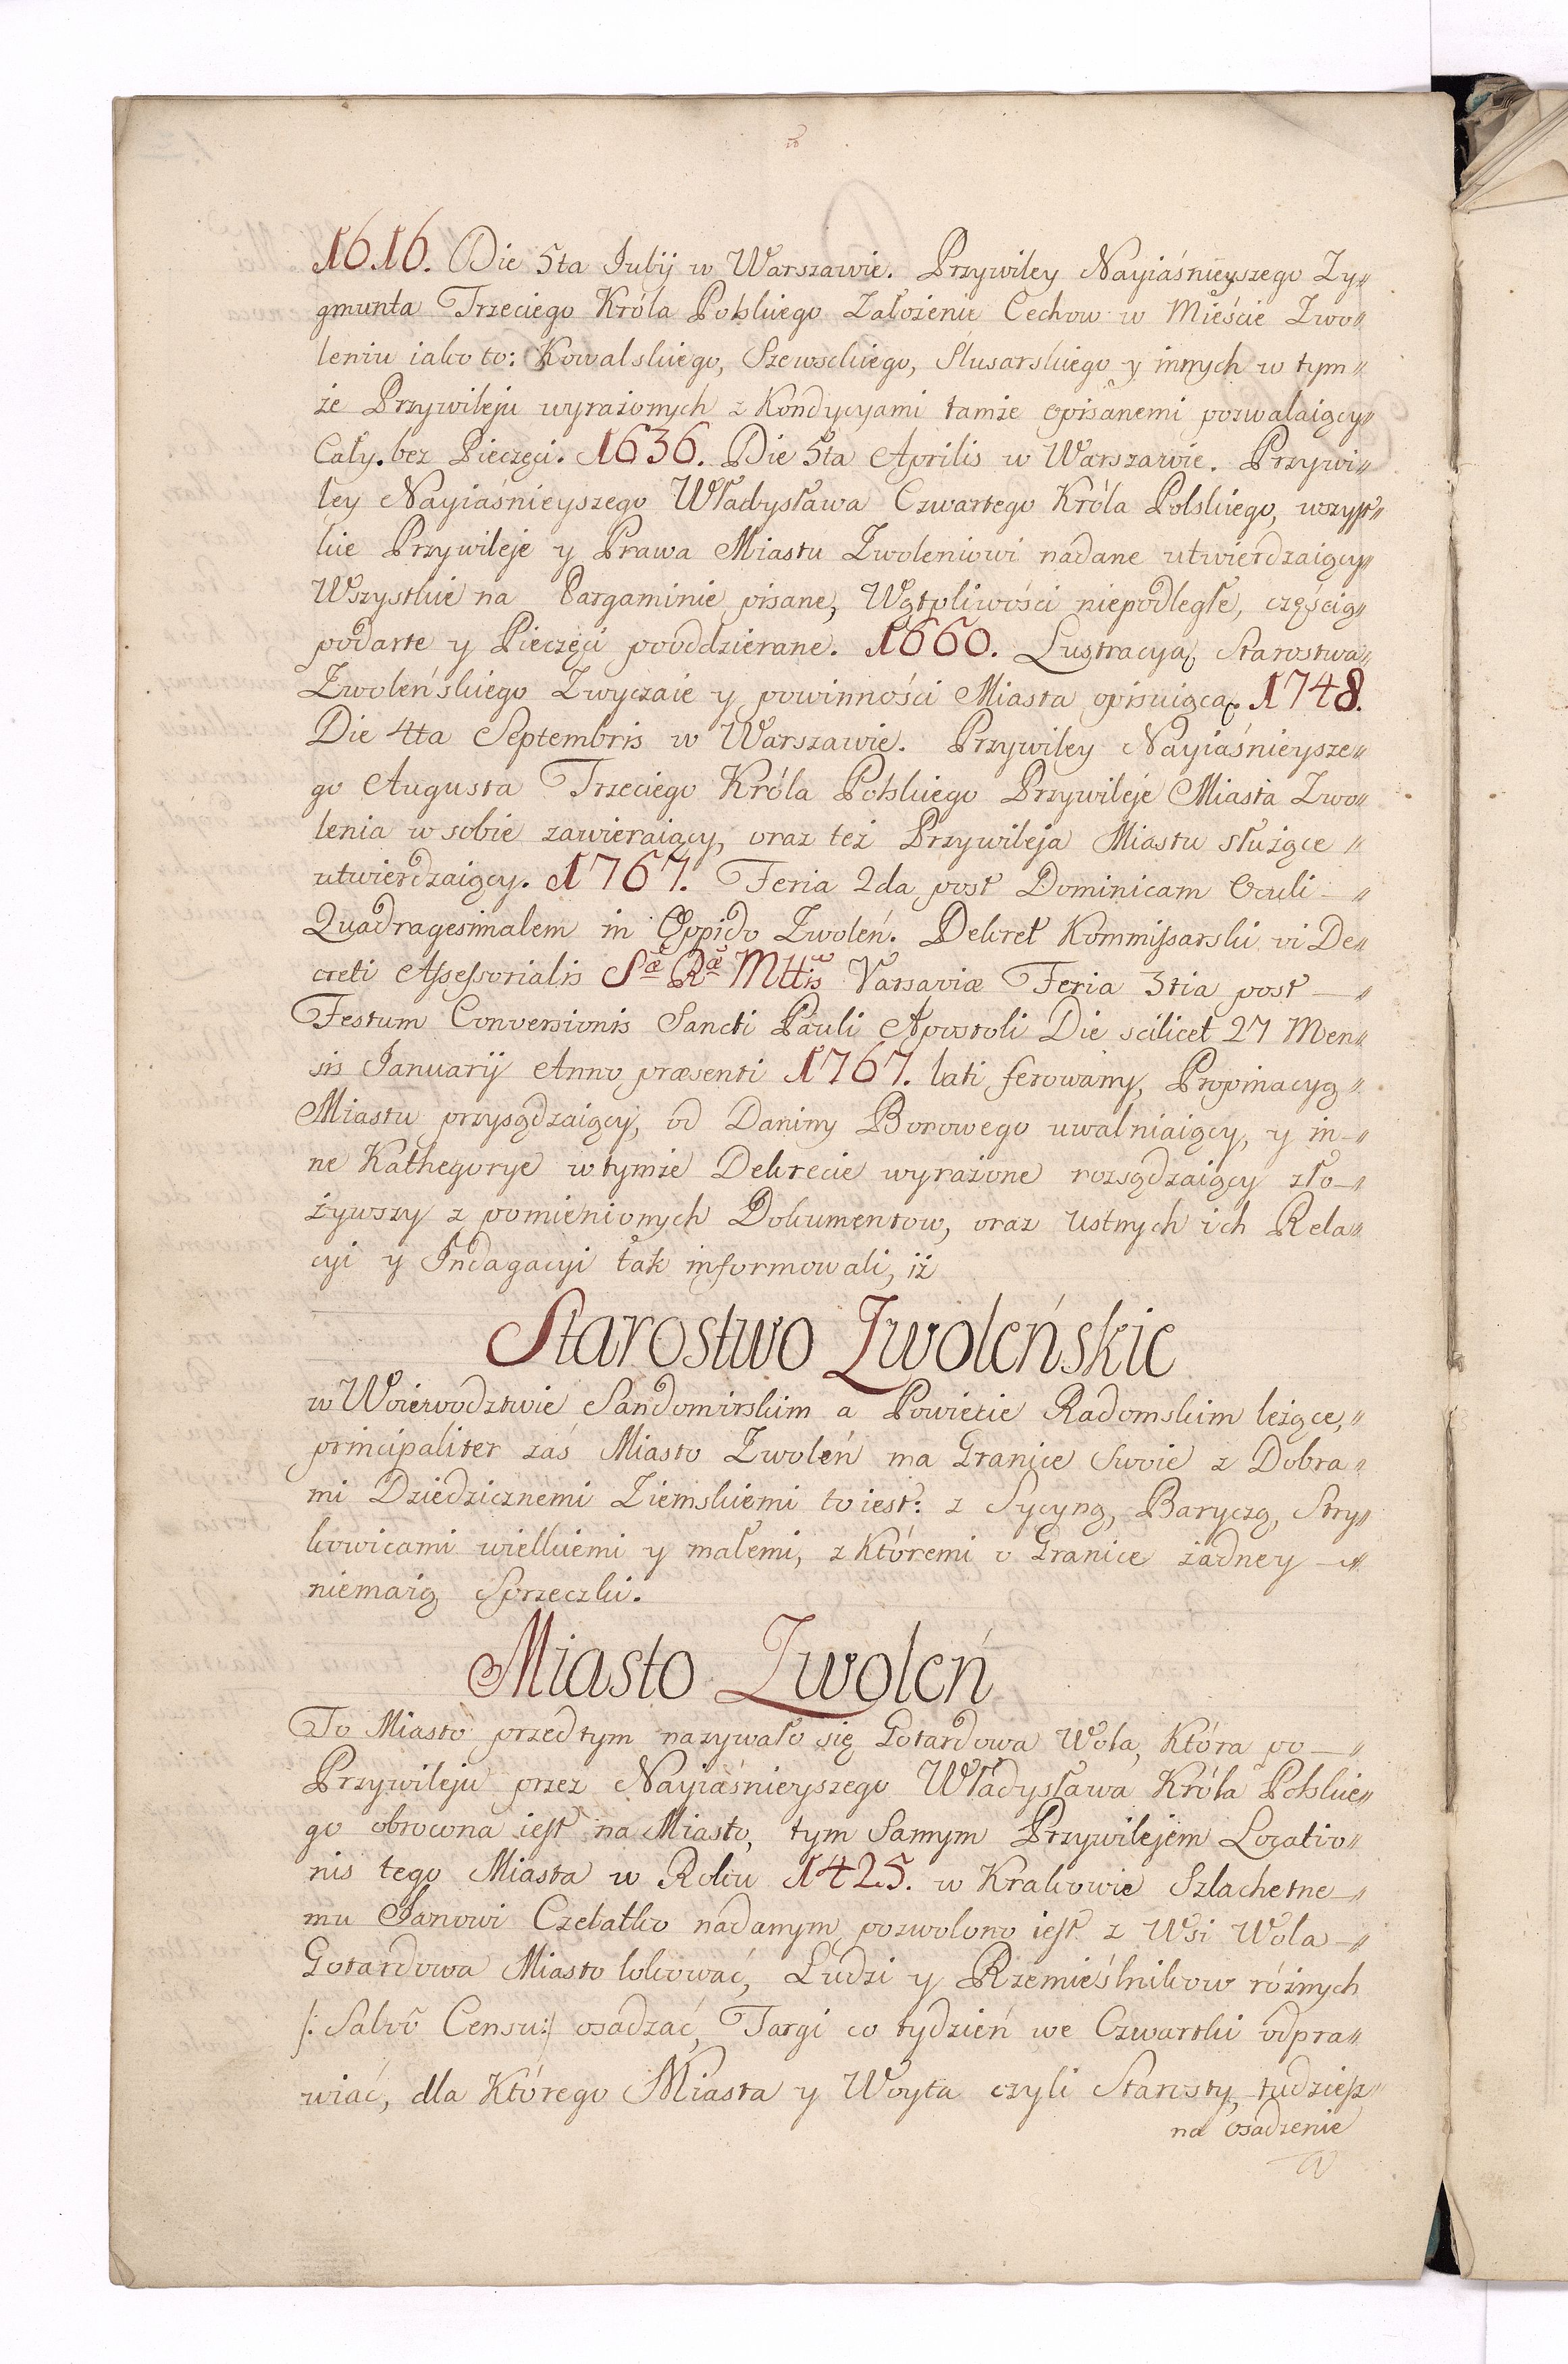 1616. Die 5ta Julij w Warszawie. Przywiley Nayiaśnieyszego Zy„
gmunta Trzeciego Króla Polskiego Założenie Cechow w Mieście Zwo„
leniu iako to: Kowalskiego, Szewsckiego, Slusarskiego y innych w tym„
że Przywileju wyrażonych z Kondycyami tamże opisanemi pozwalaiący„
Cały. bez Pieczęci. 1636. Die 5ta Aprilis w Warszawie. Przywi„
ley Nayiaśnieyszego Władysława Czwartego Króla Polskiego, wszyst„
kie Przywileje y Prawa Miastu Zwoleniowi nadane utwierdzaiący„
Wszystkie na Pargaminie pisane, Wątpliwości niepodległe, częścią„
podarte y Pieczęci pooddzierane. 1660. Lustracya, Starostwa„
Zwoleńskiego Zwyczaie y powinności Miasta opisuiąca. 1748.
Die 4ta Septembris w Warszawie. Przywiley Nayiaśnieysze„
go Augusta Trzeciego Króla Polskiego Przywileje Miasta Zwo„
lenia w sobie zawieraiący, oraz też Przywileja Miastu służące „
utwierdzaiący. 1767. Feria 2da post Dominicam Oculi — „
Quadragesimalem in Oppido Zwoleń. Dekret Kommissarski vi De„
creti Assessorialis Sæ Ræ Mttis Varsaviæ Feria 3tia post — „
Festum Conversionis Sancti Pauli Apostoli Die scilicet 27 Men„
sis Januarij Anno præsenti 1767. lati ferowany, Propinacyą „
Miastu przysądzaiący, od Daniny Borowego uwalniaiący, y in—„
ne Kathegorye w tymże Dekrecie wyrażone rozsądzaiący zło—„
żywszy z pomienionych Dokumentow, oraz Ustnych ich Rela„
cyi y Indagacyi tak informowali, iż
Starostwo Zwoleńskie
w Woiewodztwie Sandomirskim a Powiecie Radomskim leżące, „
principaliter zaś Miasto Zwoleń ma Granice Swoie z Dobra„
mi Dziedzicznemi Ziemskiemi to iest: z Sycyną, Baryczą, Stry„
kowicami wielkiemi y małemi, z Któremi o Granice żadney —„
niemaią Sprzeczki.
Miasto Zwoleń
To Miasto przedtym nazywało się Gotardowa Wola, Która po—„
Przywileju przez Nayiaśnieyszego Władysława Króla Polskie„
go obrocona iest na Miasto, tym Samym Przywilejem Locatio„
nis tego Miasta w Roku 1425. w Krakowie Szlachetne—„
mu Janowi Czelatko nadanym pozwolono iest z Wsi Wola—„
Gotardowa Miasto lokować, Ludzi y Rzemieślnikow różnych
/: Salvo Censu:/ osadzać, Targi co tydzień we Czwartki odpra„
wiać, dla Którego Miasta y Woyta czyli Starosty, tudziesz„
na osadzenie